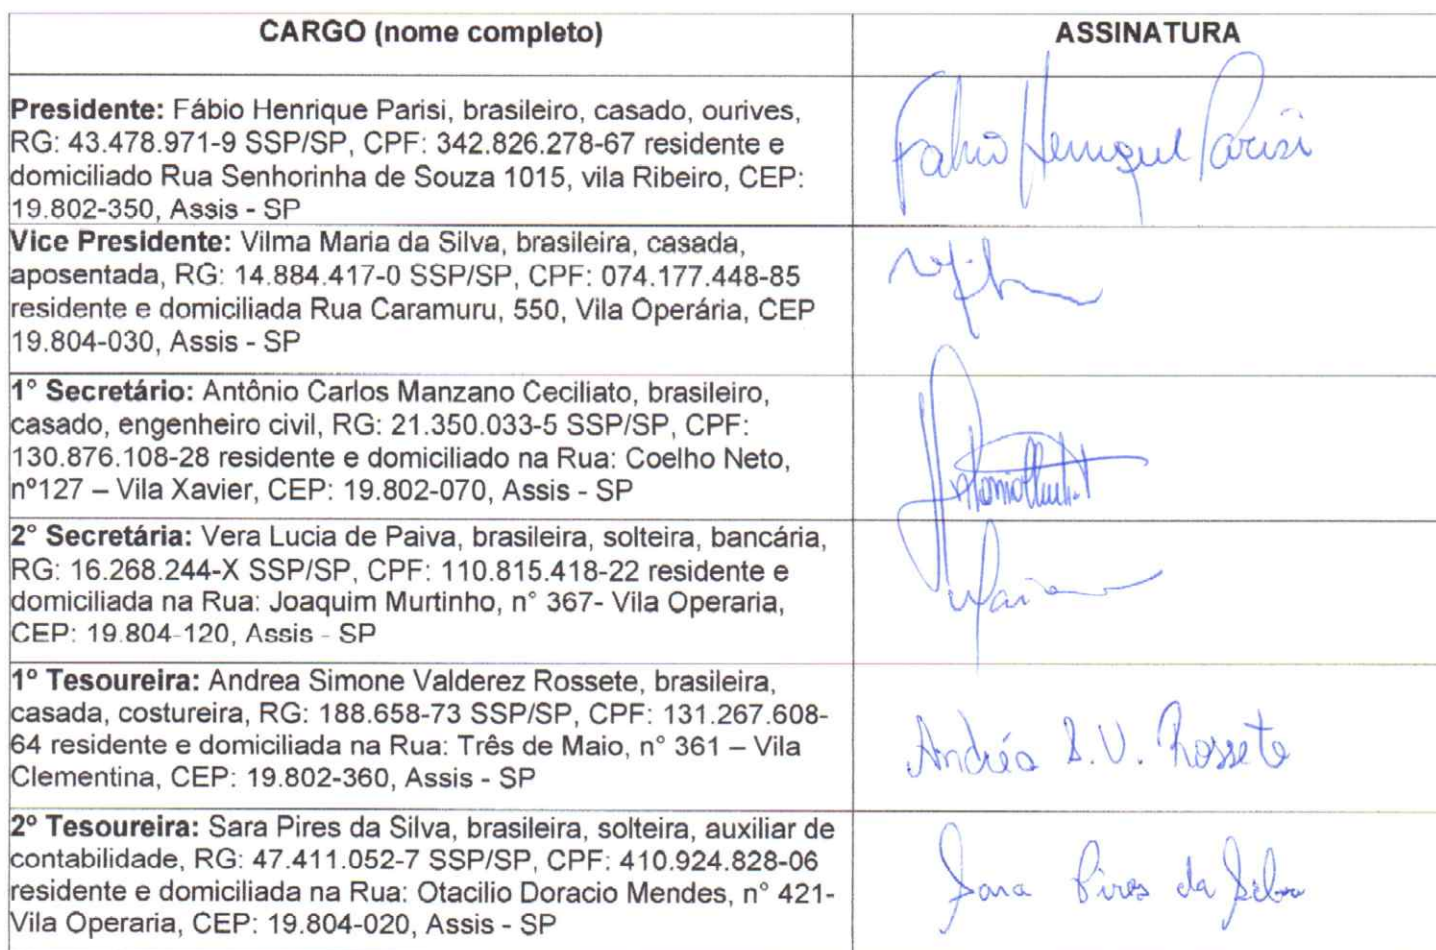 CARGO (nome completo)
ASSINATURA
Presidente: Fábio Henrique Parisi, brasileiro, casado, ourives,
RG: 43.478.971-9 SSP/SP, CPF: 342.826.278-67 residente e
domiciliado Rua Senhorinha de Souza 1015, vila Ribeiro, CEP:
19.802-350, Assis - SP
Fabio Henrique Parisi
Vice Presidente: Vilma Maria da Silva, brasileira, casada,
aposentada, RG: 14.884.417-0 SSP/SP, CPF: 074.177.448-85
residente e domiciliada Rua Caramuru, 550, Vila Operária, CEP
19.804-030, Assis - SP
1° Secretário: Antônio Carlos Manzano Ceciliato, brasileiro,
casado, engenheiro civil, RG: 21.350.033-5 SSP/SP, CPF:
130.876.108-28 residente e domiciliado na Rua: Coelho Neto,
nº127 – Vila Xavier, CEP: 19.802-070, Assis - SP
2° Secretária: Vera Lucia de Paiva, brasileira, solteira, bancária,
RG: 16.268.244-X SSP/SP, CPF: 110.815.418-22 residente e
domiciliada na Rua: Joaquim Murtinho, n° 367- Vila Operaria,
CEP: 19.804-120, Assis - SP
1º Tesoureira: Andrea Simone Valderez Rossete, brasileira,
casada, costureira, RG: 188.658-73 SSP/SP, CPF: 131.267.608-
64 residente e domiciliada na Rua: Três de Maio, n° 361 – Vila
Clementina, CEP: 19.802-360, Assis - SP
Andréa S.V. Rossete
2º Tesoureira: Sara Pires da Silva, brasileira, solteira, auxiliar de
contabilidade, RG: 47.411.052-7 SSP/SP, CPF: 410.924.828-06
residente e domiciliada na Rua: Otacilio Doracio Mendes, n° 421-
Vila Operaria, CEP: 19.804-020, Assis - SP
Sara Pires da Silva